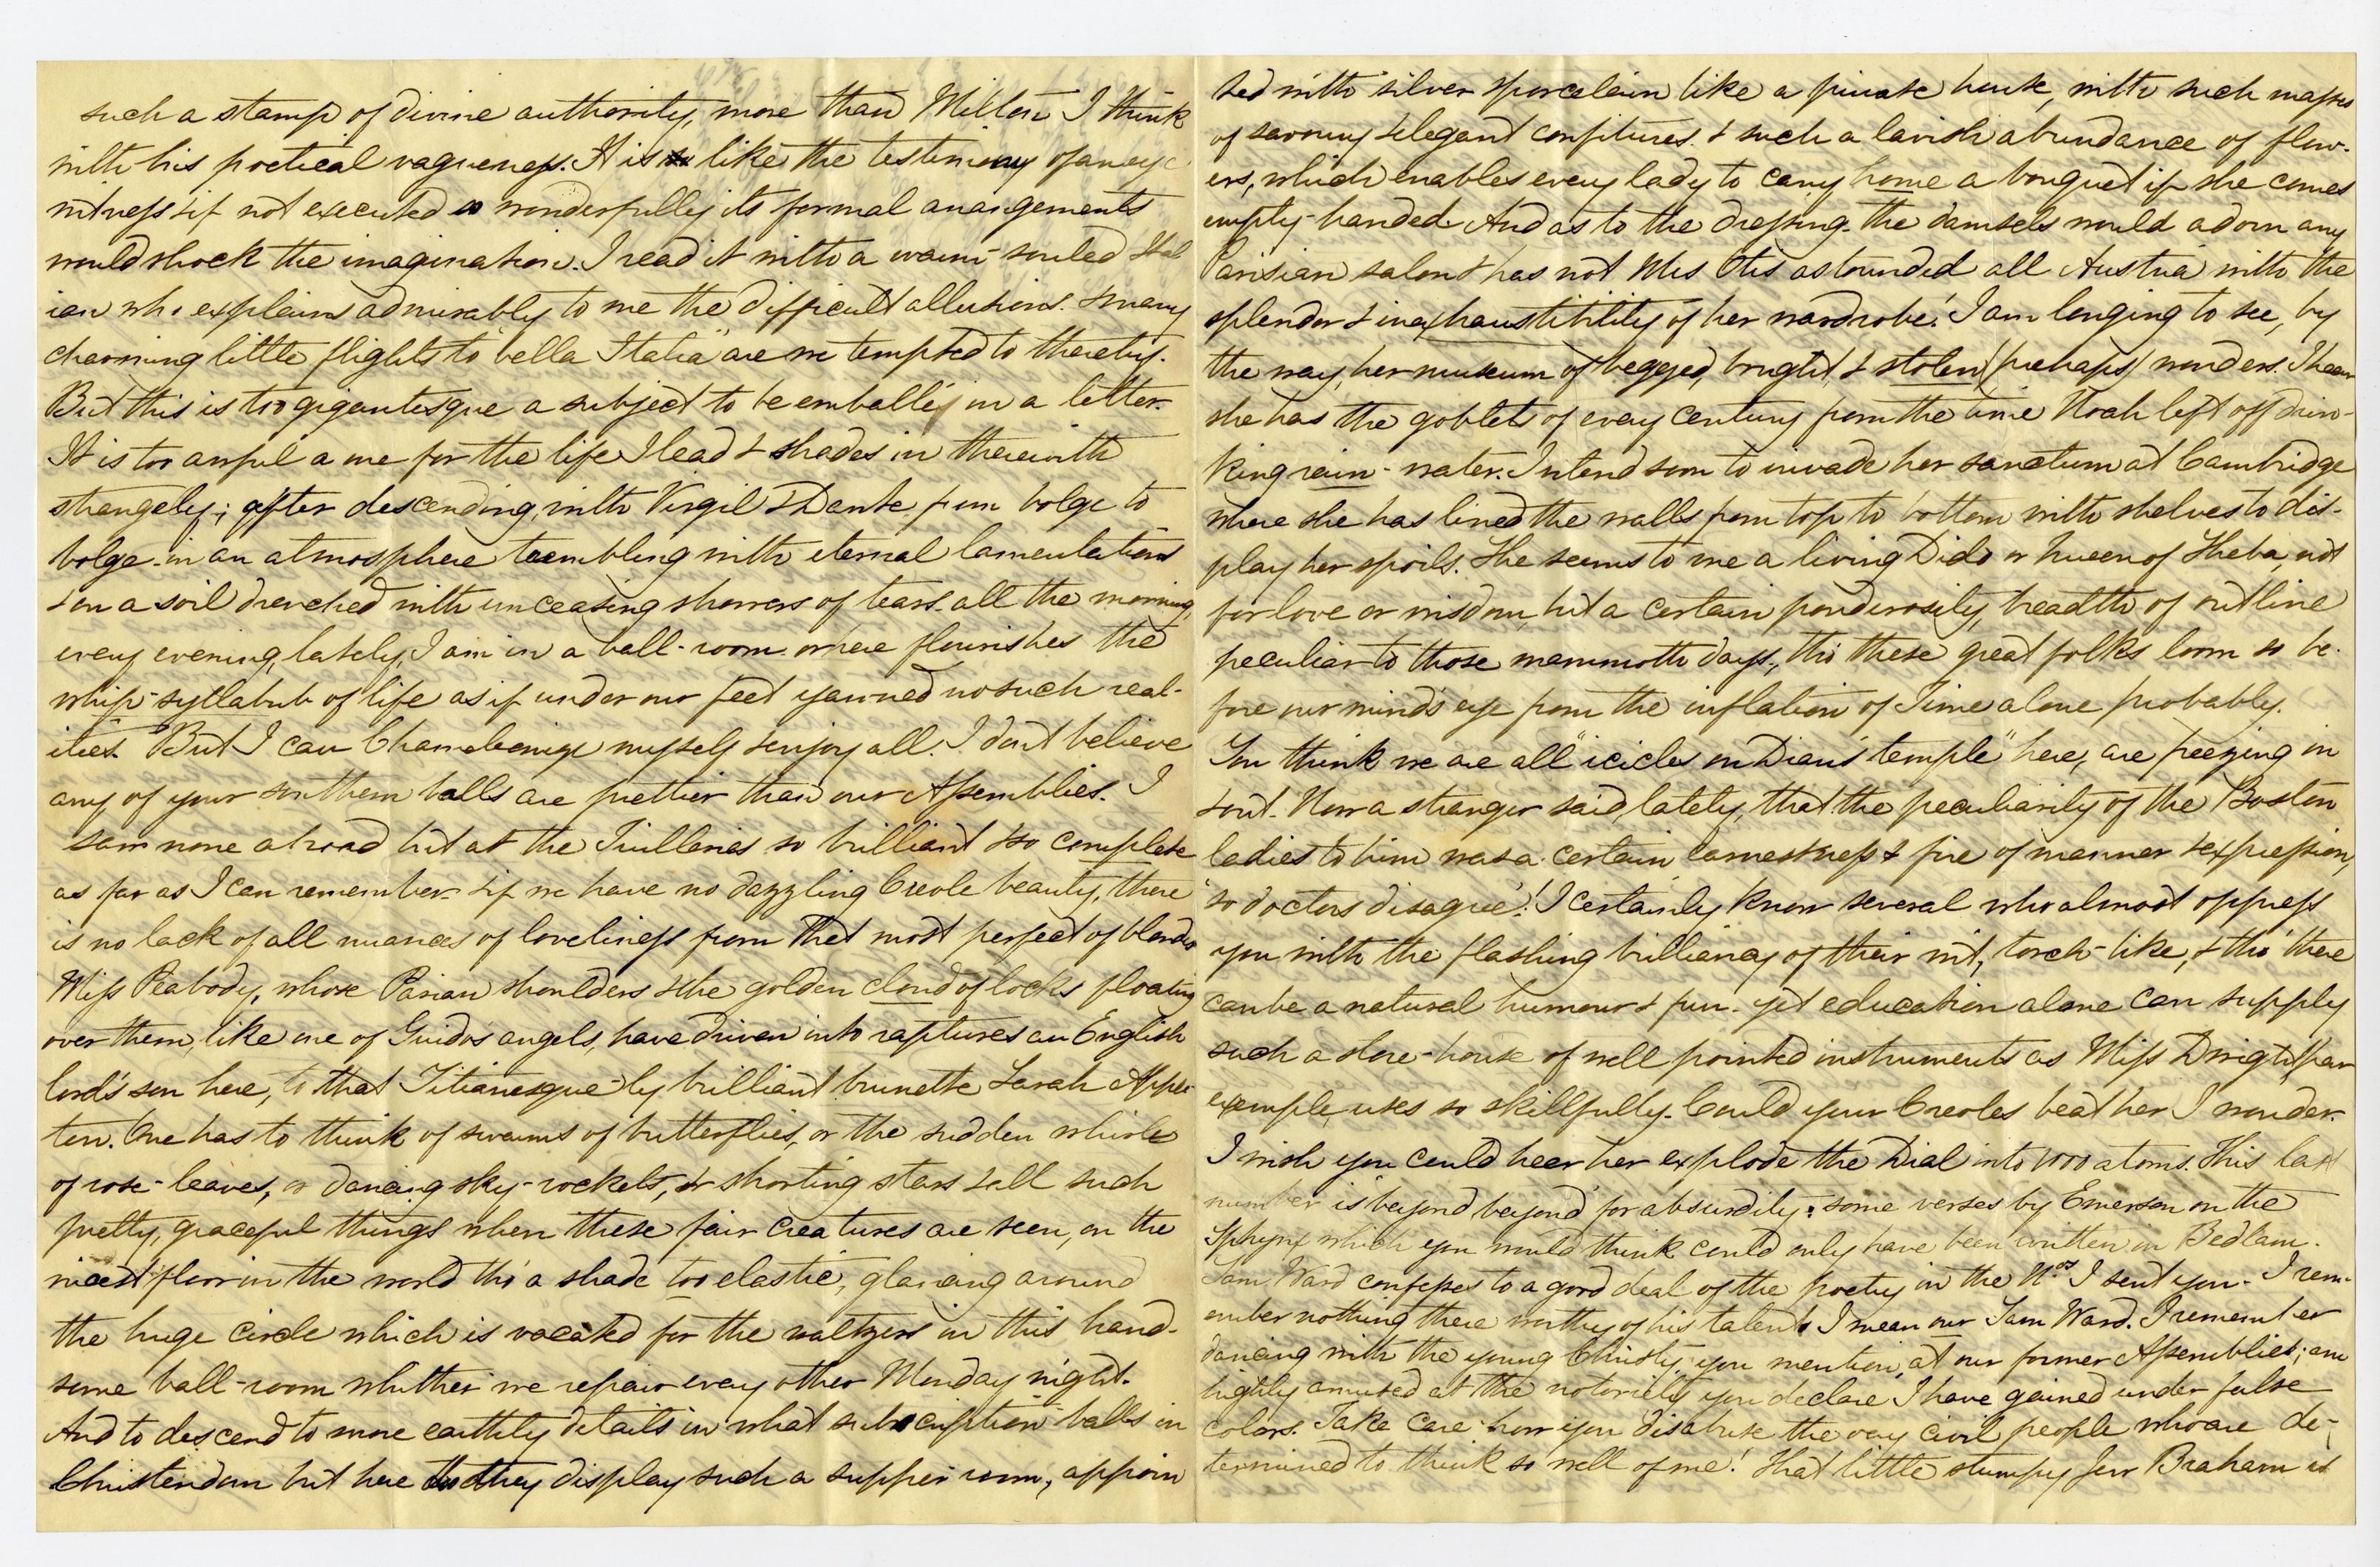 such a stamp of divine authority, more than Milton I think
with his poetical vagueness. It is like the testimony of an eye
witness & if not executed so wonderfully its formal arrangements
would shock the imagination. I read it with a warm-souled Ital
ian who explains admirably to me the difficult allusions. & many
charming little flights to "bella Italia" are we tempted to thereby.
But this is too gigantesque a subject to be emballéd in a letter.
It is too awful a one for the life I lead & shades in therewith
strangely; after descending, with Virgil & Dante from bolge to
bolge - in an atmosphere trembling with eternal lamentations
& on a soil drenched with unceasing showers of tears - all the morning,
every evening, lately, I am in a ball-room where flourishes the
whip-syllabub of life as if under our feet yawned no such real-
ities. But I can Chameleonize myself & enjoy all. I don't believe
any of your southern balls are prettier than our Assemblies. I
saw none abroad but at the Tuilleries so brilliant & so complete
as far as I can remember - & if we have no dazzling Creole beauty, there
is no lack of all nuances of loveliness from that most perfect of blondes
Miss Peabody, whose Parian shoulders & the golden cloud of locks floating
over them, like one of Guido's angels, have driven into raptures an English
lord's son here, to that Titianesque-ly brilliant brunette Sarah Apple-
ton. One has to think of swarms of butterflies, or the sudden whirls
of rose-leaves, or dancing sky-rockets, or shooting stars & all such
pretty, graceful things when these fair creatures are seen, on the
nicest floor in the world tho' a shade too elastic, glancing around
the huge circle which is vacated for the waltzers in this hand-
some ball-room whither we repair every other Monday night.
And to descend to more earthly details in what subscription balls in
Christendom but here do they display such a supper room, appoin
ted with silver & porcelain like a private house, with such masses
of savoury & elegant confitures & such a lavish abundance of flow-
ers, which enables every lady to carry home a bouquet if she comes
empty-handed. And as to the dressing - the damsels would adorn any
Parisian salon & has not Mrs Otis astounded all Austria with the
splendor & inexhaustibility of her wardrobe! I am longing to see, by
the way, her museum of begged, bought, & stolen (perhaps) wonders. I hear
she has the goblets of every century from the time Noah left off drin-
king rain-water. I intend soon to invade her sanctum at Cambridge
where she has lined the walls from top to bottom with shelves to dis-
play her spoils. She seems to me a living Dido or Queen of Sheba, not
for love or wisdom, but a certain ponderosity, breadth of outline
peculiar to those mammoth days, tho' these great folks loom so be-
fore our mind's eye from the inflation of Time alone probably.
You think we are all "icicles on Dian's temple" here, are freezing in
& out. Now a stranger said, lately, that the peculiarity of the Boston
ladies to him was a certain earnestness & fire of manner & expression,
"so doctors disagree"! I certainly know several who almost oppress
you with the flashing brilliancy of their wit, torch-like, & tho' there
can be a natural humour & fun - yet education alone can supply
such a store-house of well pointed instruments as Miss Dwight, par
exemple, uses so skillfully. Could your Creoles beat her I wonder.
I wish you could hear her explode the Dial into 1000 atoms. This last
number is "beyond beyond" for absurdity: some verses by Emerson on the
Sphynx which you would think could only have been written in Bedlam.
Sam Ward confesses to a good deal of the poetry in the Nos I sent you - I rem-
ember nothing there worthy of his talent. I mean our Sam Ward. I remember
dancing with the young Christy, you mention, at our former Assemblies; am
highly amused at the notoriety you declare I have gained under false
colors. Take care how you disabuse the very civil people who are de-
termined to think so well of me! That little stumpy Jew Braham is